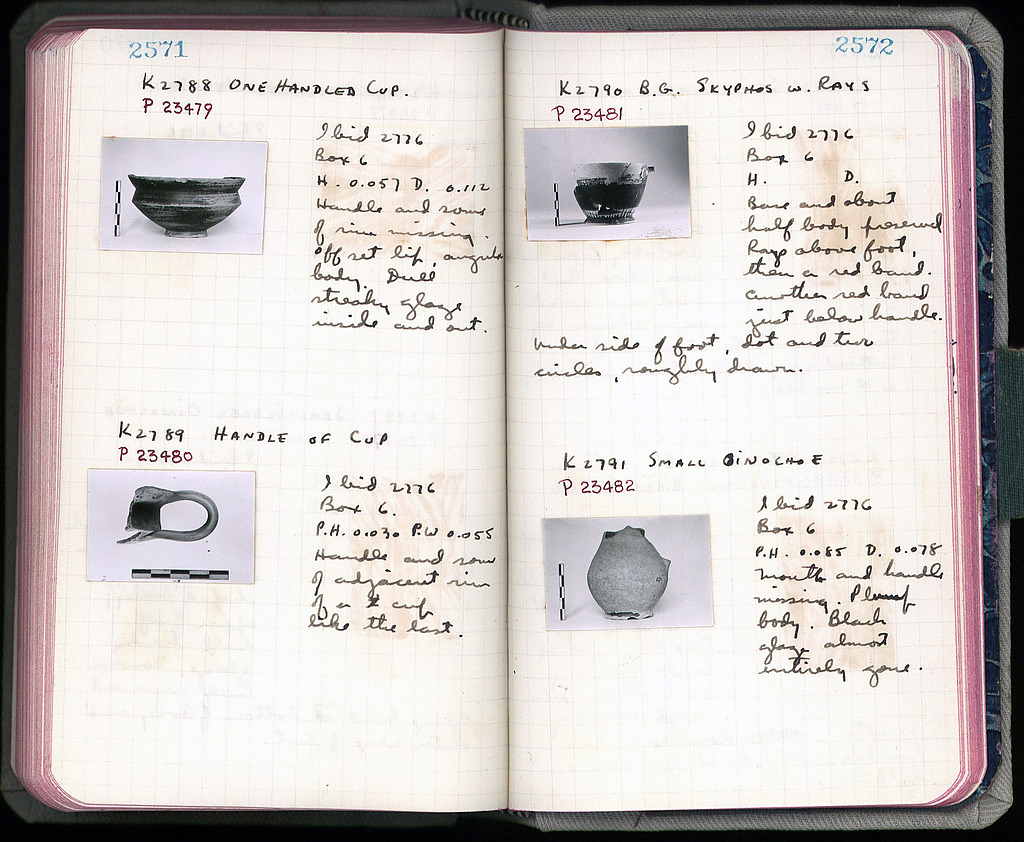 2571
K2788 ONE HANDLED CUP.
P 23479
Ibid 2776
Box 6
H. 0.057 D. 0.112
Handle and some
of rim missing.
Off set lip, angular
body. Dull
streaky glaze
inside and out.
K2789 HANDLE OF CUP
P 23480
Ibid 2776
Box 6.
P.H. 0.030 P.W 0.055
Handle and some
of adjacent rim
of a cup
like the last.
2572
K2790 B.G. SKYPHOS W. RAYS
P 23481
Ibid 2776
Box 6
H. D.
Base and about
half body preserved
Rays above foot,
then a red band.
another red band
just below handle.
Under side of foot, dot and two
circles, roughly drawn.
K2791 SMALL OINOCHOE
P 23482
Ibid 2776
Box 6
P.H. 0.085 D. 0.078
Mouth and handle
missing. Plump
body. Black
glaze almost
entirely gone.